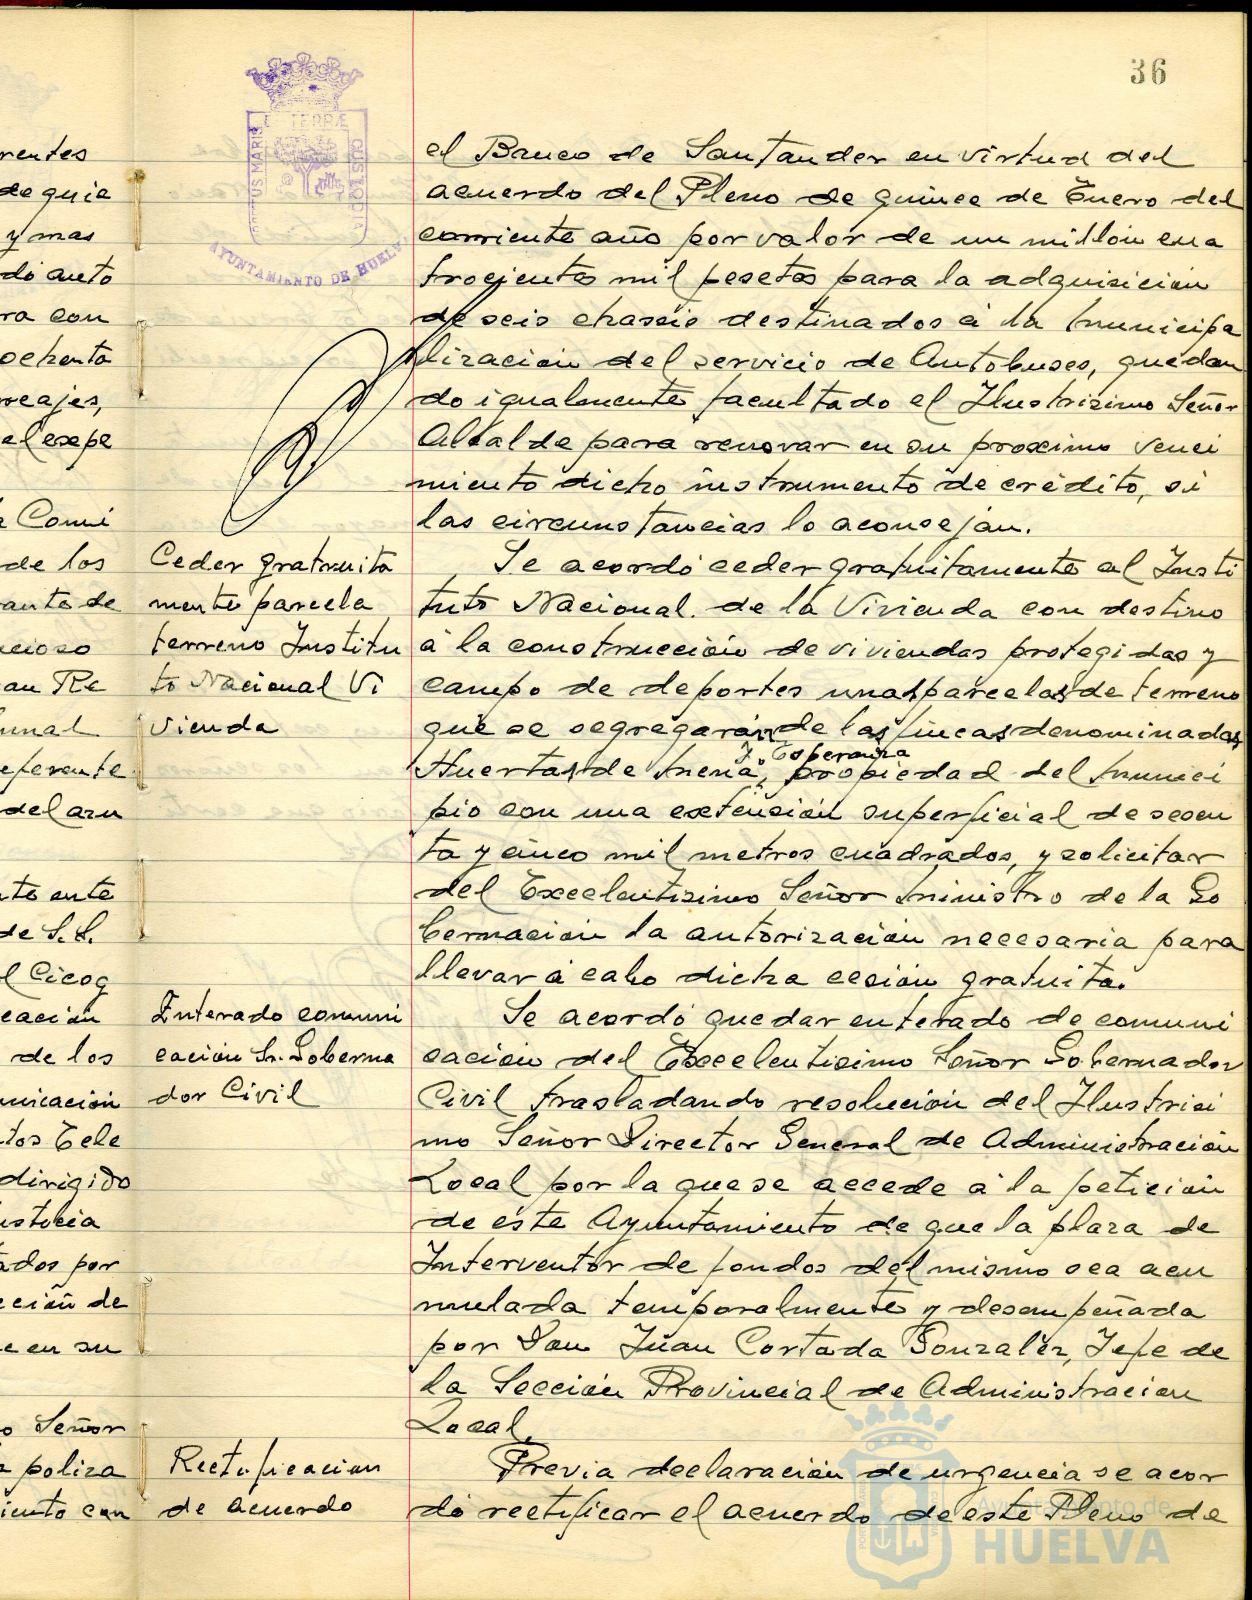 36
PORTUS MARIS
ET TERRÆ
CUSTODIA
AYUNTAMIENTO DE HUELVA
rentes
de guia
y mas
dó auto
ra con
ochenta
reajes,
el expe
a Comi
de los
ante de
ncioso
an Re
unal
eferente
del azu
nto ente
de S.S.
l Cicog
cación
de los
unicación
tos Tele
dirigido
usticia
ados por
cción de
e en su
o Señor
a poliza
iento con
Ceder gratuita
mente parcela
terreno Institu
to Nacional Vi
vienda
Enterado comuni
cación Sr. Goberna
dor Civil
Rectificacion
de acuerdo
el Banco de Santander en virtud del
acuerdo del Pleno de quince de Enero del
corriente año por valor de un millón cua
trocientas mil pesetas para la adquisición
de seis chassis destinados á la municipa
lización del servicio de Autobuses, quedan
do igualmente facultado el Ilustrisimo Señor
Alcalde para renovar en su proximo venci
miento dicho instrumento de crédito, si
las circunstancias lo aconsejan.
Se acordó ceder gratuitamente al Insti
tuto Nacional de la Vivienda con destino
á la construcción de viviendas protegidas y
campo de deportes unas parcelas de terreno
que se segregarán de las fincas denominadas
y Esperanza
Huertas de Mena, propiedad del munici
pio con una extensión superficial de sesen
ta y cinco mil metros cuadrados, y solicitar
del Excelentisimo Señor Ministro de la Go
bernación la autorización necesaria para
llevar á cabo dicha cesión gratuita.
Se acordó quedar enterado de comuni
cación del Excelentisimo Señor Gobernador
Civil trasladando resolución del Ilustrisi
mo Señor Director General de Administración
Local por la que se accede á la petición
de este Ayuntamiento de que la plaza de
Interventor de fondos del mismo sea acu
mulada temporalmente y desempeñada
por Don Juan Cortada Gonzalez, Jefe de
la Sección Provincial de Administración
Local.
Previa declaración de urgencia se acor
dó rectificar el acuerdo de este Pleno de
Ayuntamiento de
HUELVA